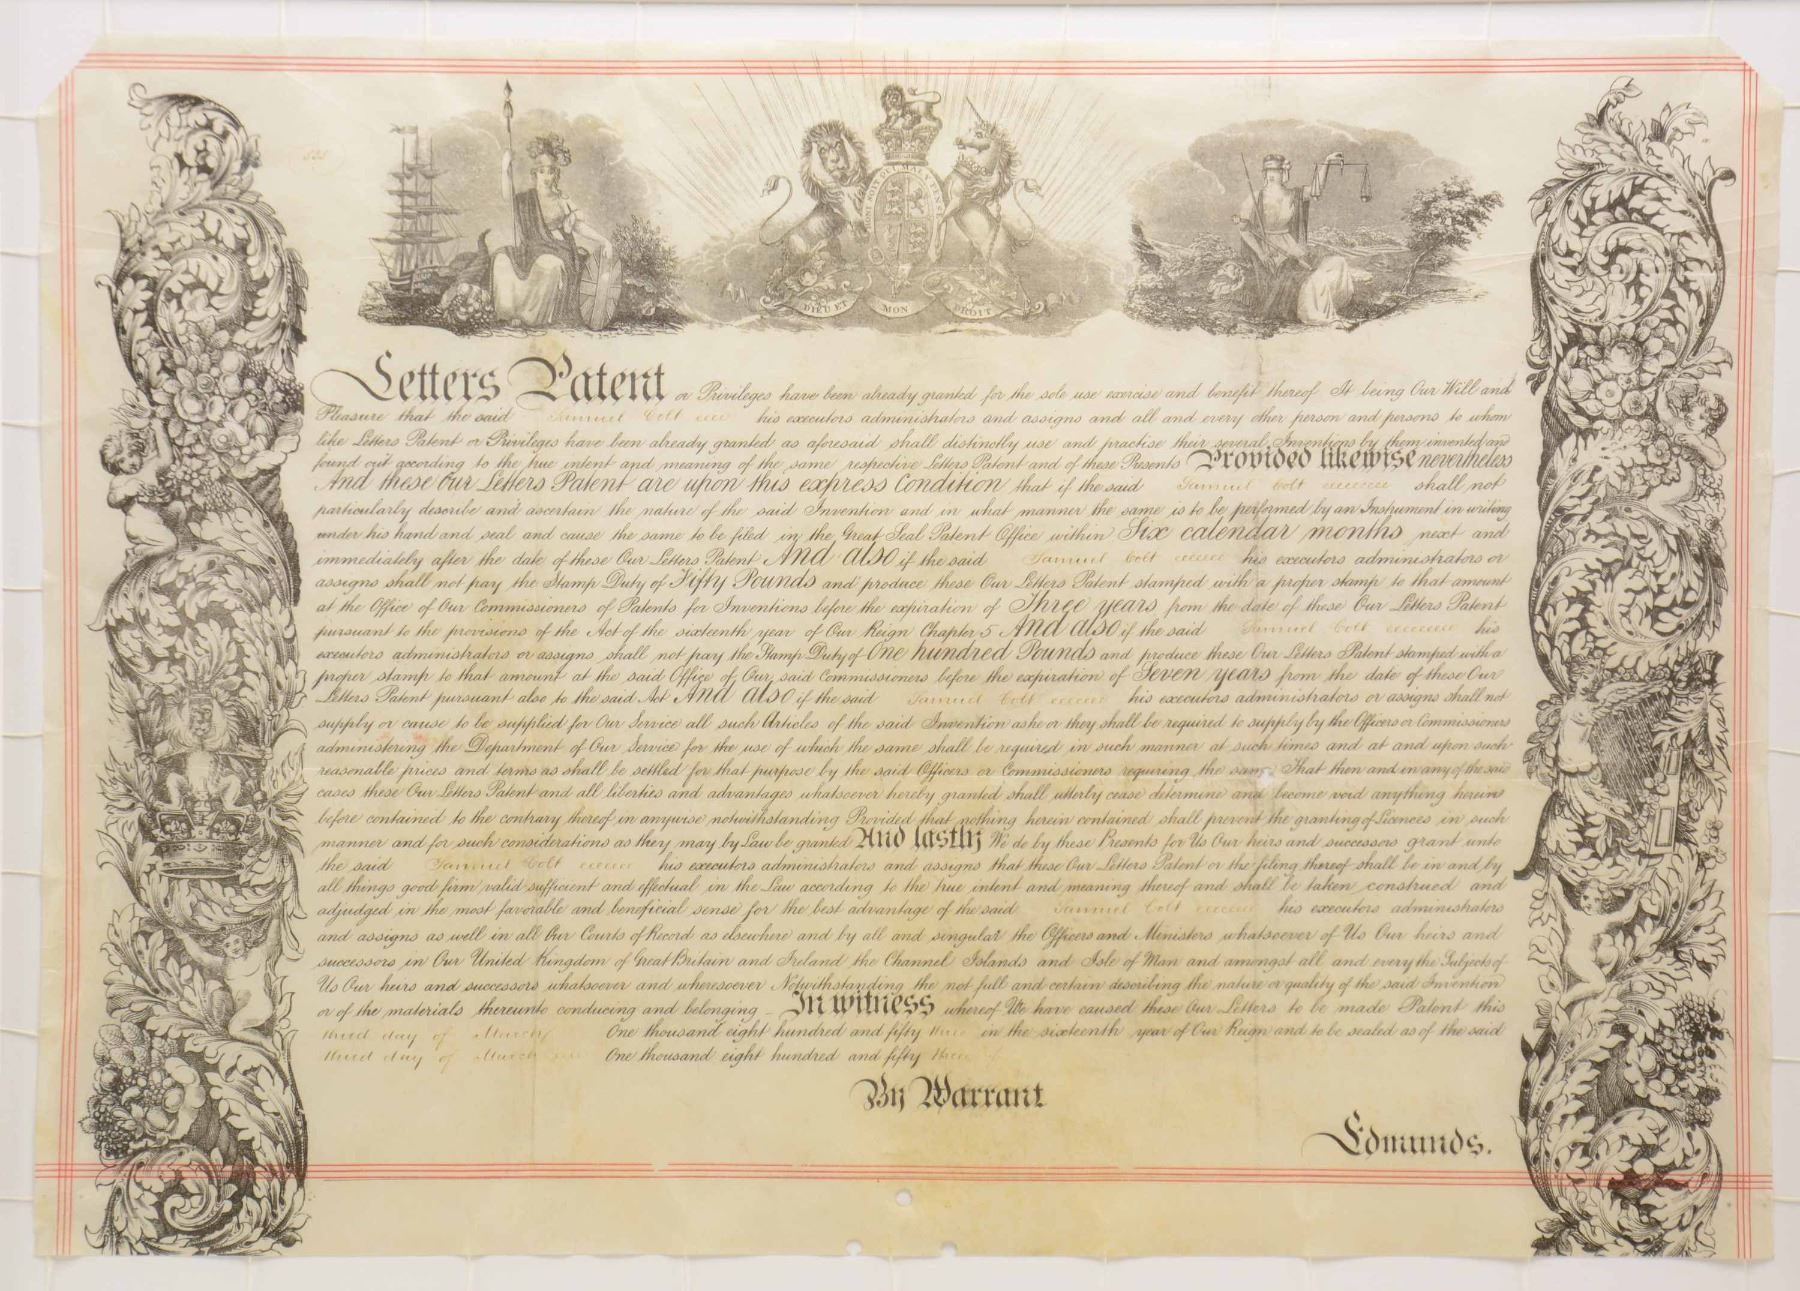 535
HONI SOIT QUI MAL Y PENSE
DIEU ET MON DROIT
Letters Patent or Privileges have been already granted for the sole use exercise and benefit thereof It being Our Will and
Pleasure that the said Samuel Colt his executors administrators and assigns and all and every other person and persons to whom
like Letters Patent or Privileges have been already granted as aforesaid shall distinctly use and practise their several Inventions by them invented and
found out according to the true intent and meaning of the same respective Letters Patent and of these Presents Provided likewise nevertheless
And these Our Letters Patent are upon this express Condition that if the said Samuel Colt shall not
particularly describe and ascertain the nature of the said Invention and in what manner the same is to be performed by an Instrument in writing
under his hand and seal and cause the same to be filed in the Great Seal Patent Office within Six calendar months next and
immediately after the date of these Our Letters Patent And also if the said Samuel Colt his executors administrators or
assigns shall not pay the Stamp Duty of Fifty Pounds and produce these Our Letters Patent stamped with a proper stamp to that amount
at the Office of Our Commissioners of Patents for Inventions before the expiration of Three years from the date of these Our Letters Patent
pursuant to the provisions of the Act of the sixteenth year of Our Reign Chapter 5 And also if the said Samuel Colt his
executors administrators or assigns shall not pay the Stamp Duty of One hundred Pounds and produce these Our Letters Patent stamped with a
proper stamp to that amount at the said Office of Our said Commissioners before the expiration of Seven years from the date of these Our
Letters Patent pursuant also to the said Act And also if the said Samuel Colt his executors administrators or assigns shall not
supply or cause to be supplied for Our Service all such Articles of the said Invention as he or they shall be required to supply by the Officers or Commissioners
administering the Department of Our Service for the use of which the same shall be required in such manner at such times and at and upon such
reasonable prices and terms as shall be settled for that purpose by the said Officers or Commissioners requiring the same That then and in any of the said
cases these Our Letters Patent and all liberties and advantages whatsoever hereby granted shall utterly cease determine and become void anything herein
before contained to the contrary thereof in anywise notwithstanding Provided that nothing herein contained shall prevent the granting of Licences in such
manner and for such considerations as they may by Law be granted And lastly We do by these Presents for Us Our heirs and successors grant unto
the said Samuel Colt his executors administrators and assigns that these Our Letters Patent or the filing thereof shall be in and by
all things good firm valid sufficient and effectual in the Law according to the true intent and meaning thereof and shall be taken construed and
adjudged in the most favorable and beneficial sense for the best advantage of the said Samuel Colt his executors administrators
and assigns as well in all Our Courts of Record as elsewhere and by all and singular the Officers and Ministers whatsoever of Us Our heirs and
successors in Our United Kingdom of Great Britain and Ireland the Channel Islands and Isle of Man and amongst all and every the Subjects of
Us Our heirs and successors whatsoever and wheresoever Notwithstanding the not full and certain describing the nature or quality of the said Invention
or of the materials thereunto conducing and belonging - In witness whereof We have caused these Our Letters to be made Patent this
third day of March One thousand eight hundred and fifty three in the sixteenth year of Our Reign and to be sealed as of the said
third day of March One thousand eight hundred and fifty three
By Warrant
Edmunds.